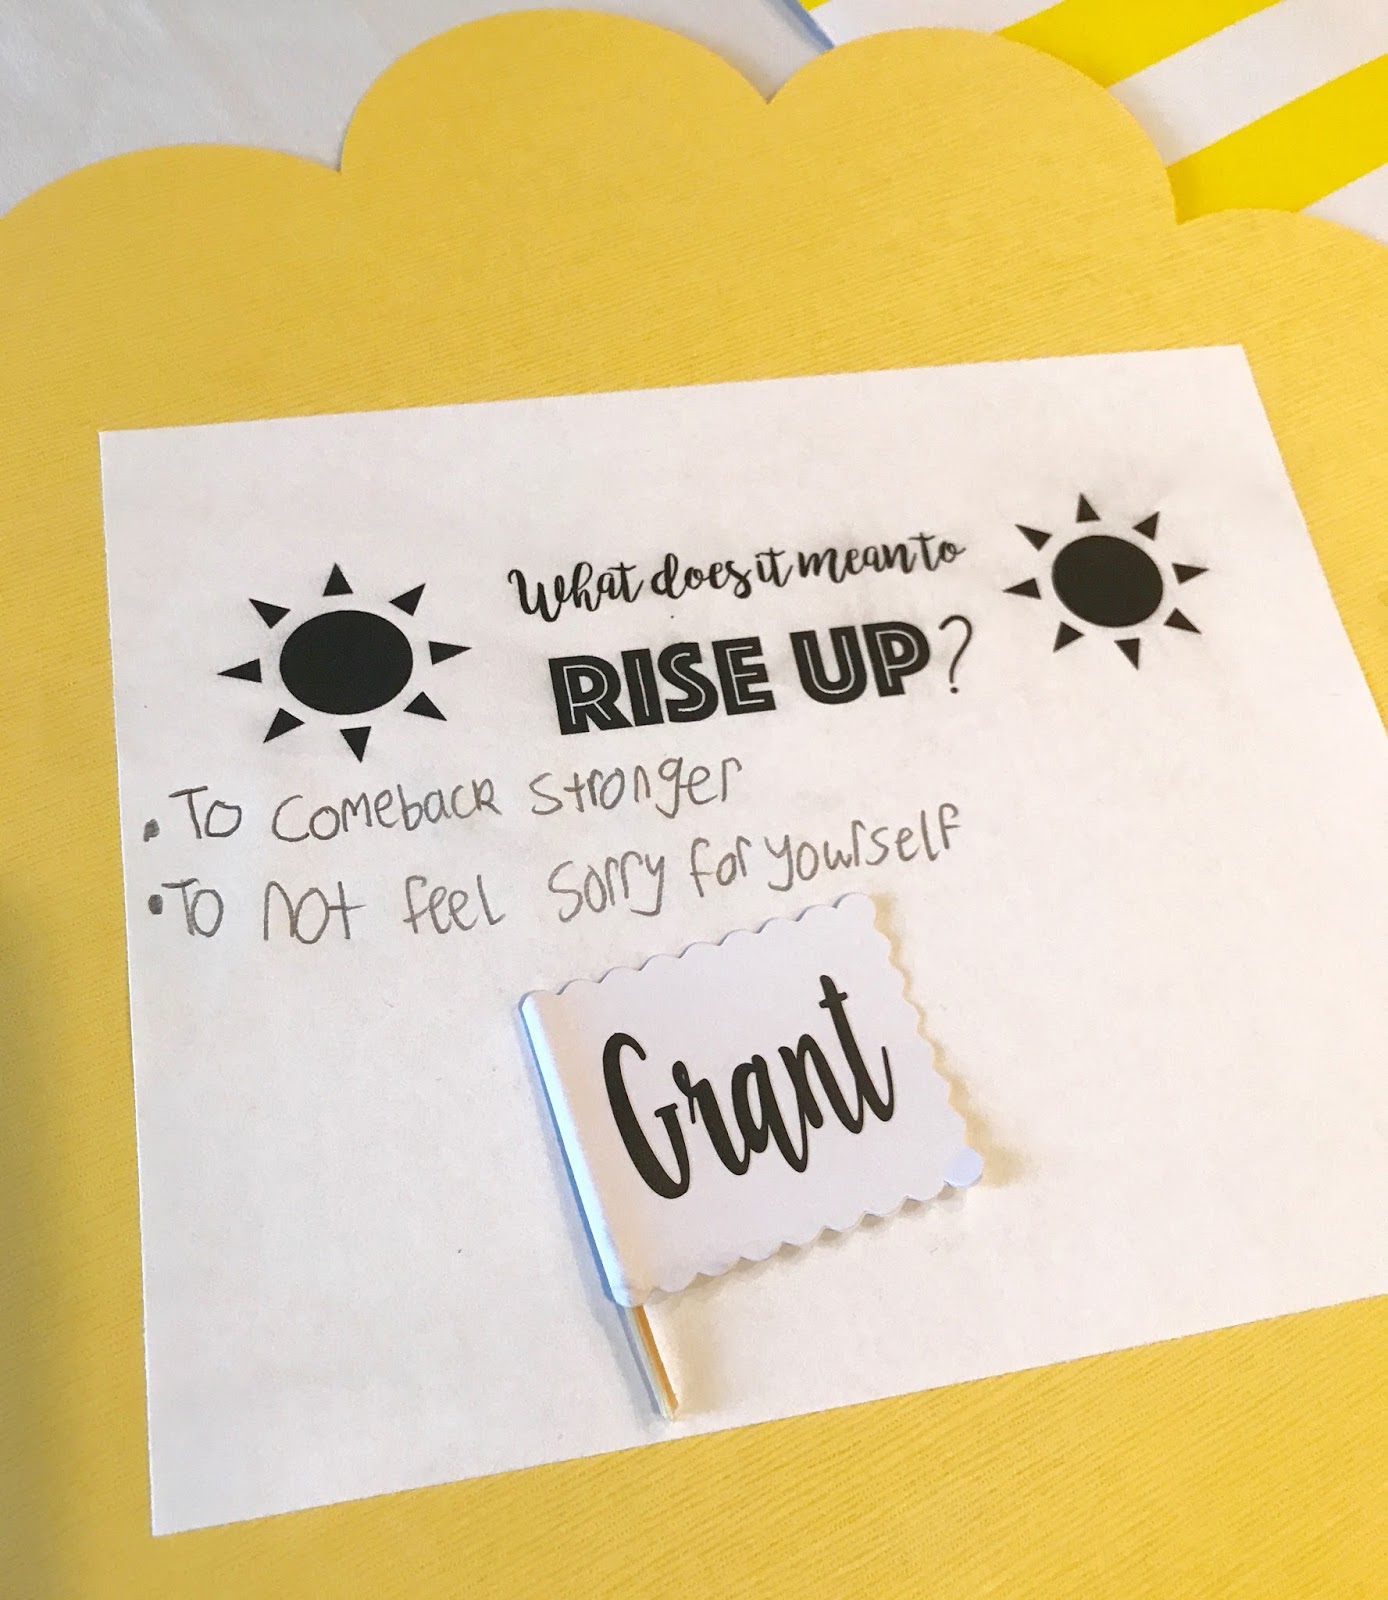 What does it mean to
RISE UP?
• To comeback stronger
• To not feel sorry for yourself
Grant